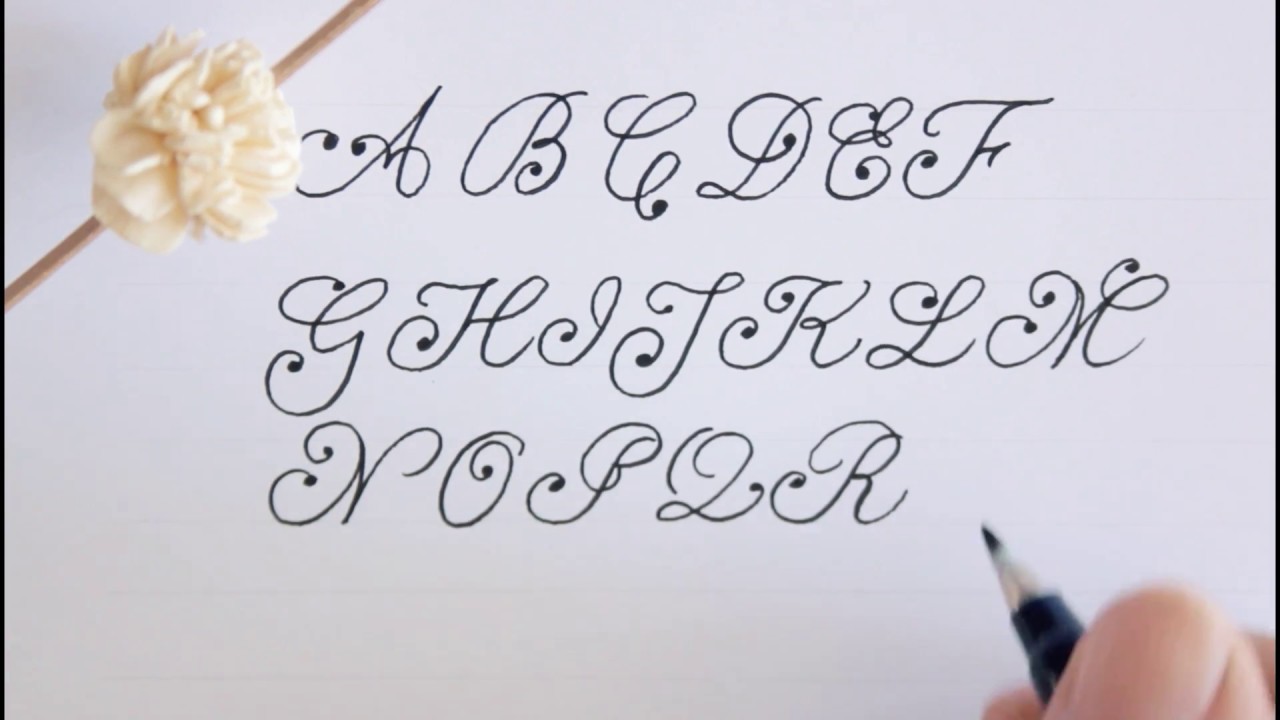 A B C D E F
G H I J K L M
N O P Q R